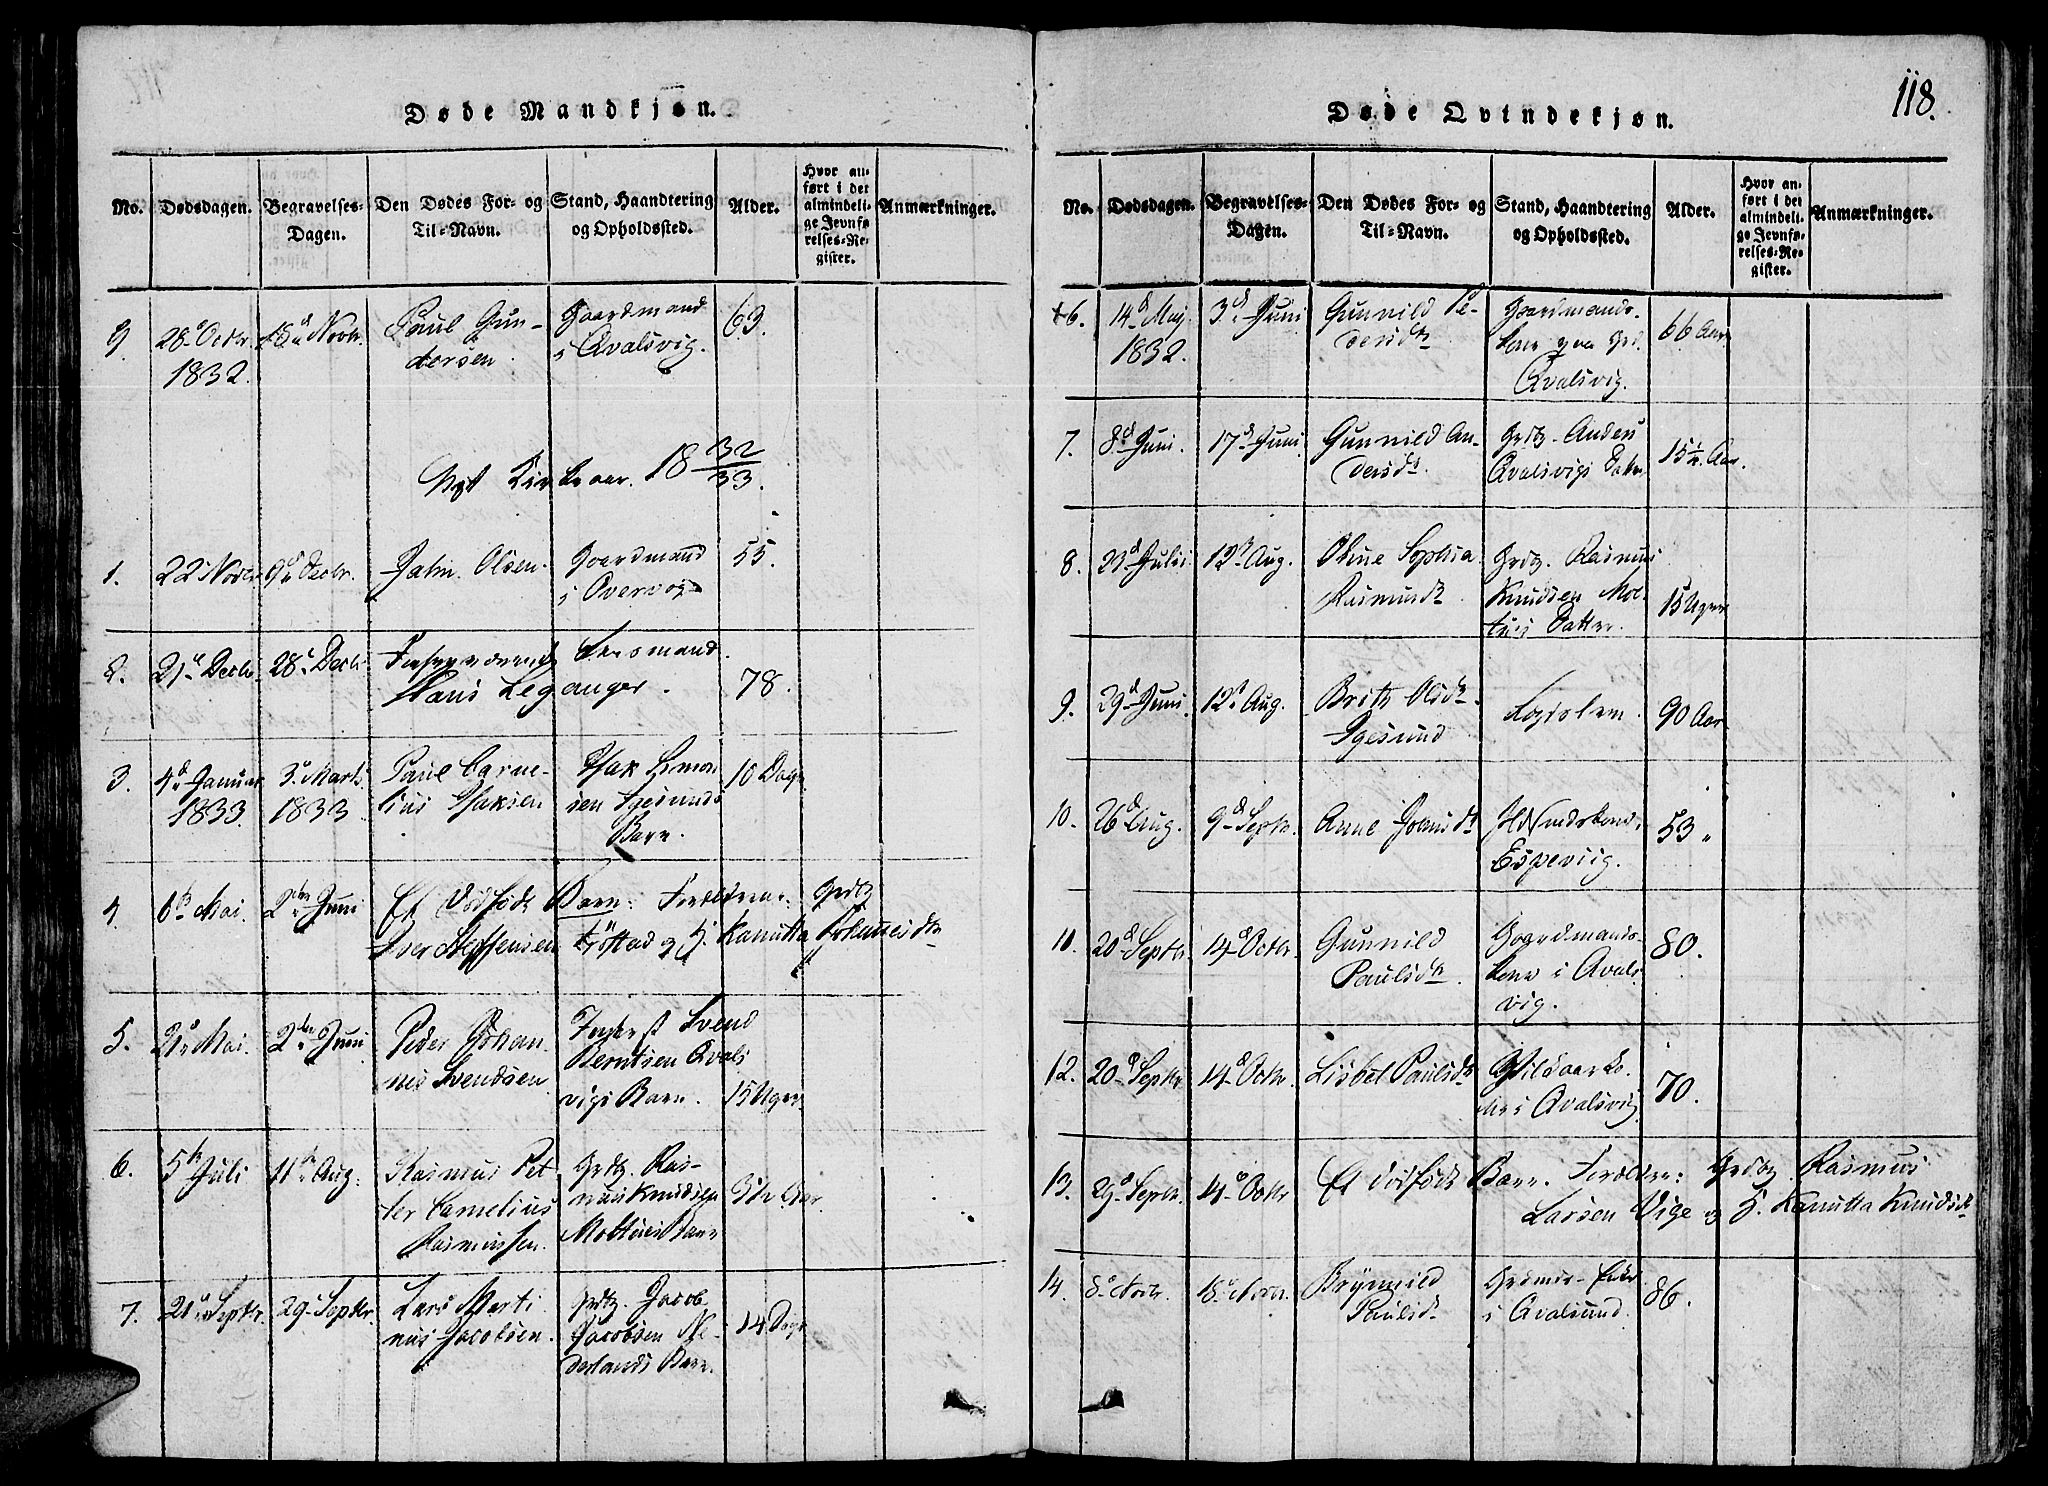 118.
Døde Mandkjøn.
No.
Dødsdagen.
Begravelses-
Dagen.
Den Dødes For- og
Til-Navn.
Stand, Haandtering
og Opholdssted.
Alder.
Hvor an-
ført i det
almindeli-
ge Jevnfø-
relses-Re-
gister.
Anmærkninger.
9
28 Octbr.
1832.
18 Novbr.
Paul Gun-
dersen
Gaardmand
i Qvalsvig.
63.
Nyt Kirkeaar. 18 32/33.
1.
22 Novbr
9 Decbr.
Jahn Olsen
Gaardmand
i Qvervog
55.
2.
21 Decbr.
28 Decbr
Lensmand
Hans Leganger.
78.
3.
4 Januar
1833.
3 Marts
1833
Paul Corne-
lius Isaksen
Isak Simon
sen Igesunds
Barn.
10 Dage
4.
6 Mai.
2den Juni
Et dødfødt Barn: Forældrene: Grdbr
Iver Steffensen og H. Kanutta Johannesdtr
5.
21 Mai.
2den Juni
Peder Johan-
nes Svendsen
Svend
Berntsen Qvals
vigs Barn.
15 Uger
6.
5 Juli
11 Aug.
Rasmus Pet
ter Cornelius
Rasmussen.
Grdbr. Ras-
mus Knudsen
Moltues Barn
7.
21 Septbr.
29 Septbr
Lars Marti
nus Jacobsen.
Grdbr. Jacob
Jacobsen Ne-
derlands Barn.
14 Dage
Døde Qvindekjøn.
No.
Dødsdagen.
Begravelses-
Dagen.
Den Dødes For- og
Til-Navn.
Stand, Haandtering
og Opholdssted.
Alder.
Hvor an-
ført i det
almindeli-
ge Jevnfø-
relses-Re-
gister.
Anmærkninger.
6.
14 Maj
1832.
3 Juni
Gunnild Pe-
dersdtr
Gaardmands-
kone paa Grd.
Qvalsvig.
66 Aar
7.
8 Juni.
17 Juni
Gunnild An-
dersdt.
Grdbr. Anders
Qvalsvigs Datter
15 1/4 Aar.
8.
23 Julii
12 Aug.
Oline Sophia
Rasmusdtr
Grdbr. Rasmus
Knudsen Mol-
tues Datter.
15 Uger
9.
29 Juni
12 Aug.
Brithe Olsdtr
Igesund
Logislem.
90 Aar
10.
26 Aug.
9 Septbr.
Anne Johnsdt
Espeviig.
53 "
11.
20 Septbr
14 Octbr.
Gunnild
Paulsdtr.
Gaardmands-
kone i Qvals
vig.
80.
12.
20 Septbr
14 Octbr.
Lisbet Paulsdtr
i Qvalsvig
70.
13.
29 Septbr.
14 Octbr
Et dødfødt Barn. Forældre: Grdbr. Rasmus
Larsen Vige og H. Kanutta Knudsdt
14.
8 Novbr.
18 Novbr.
Brynnild
Paulsdt
Grdmds- Enke
i Qvalsund.
86.